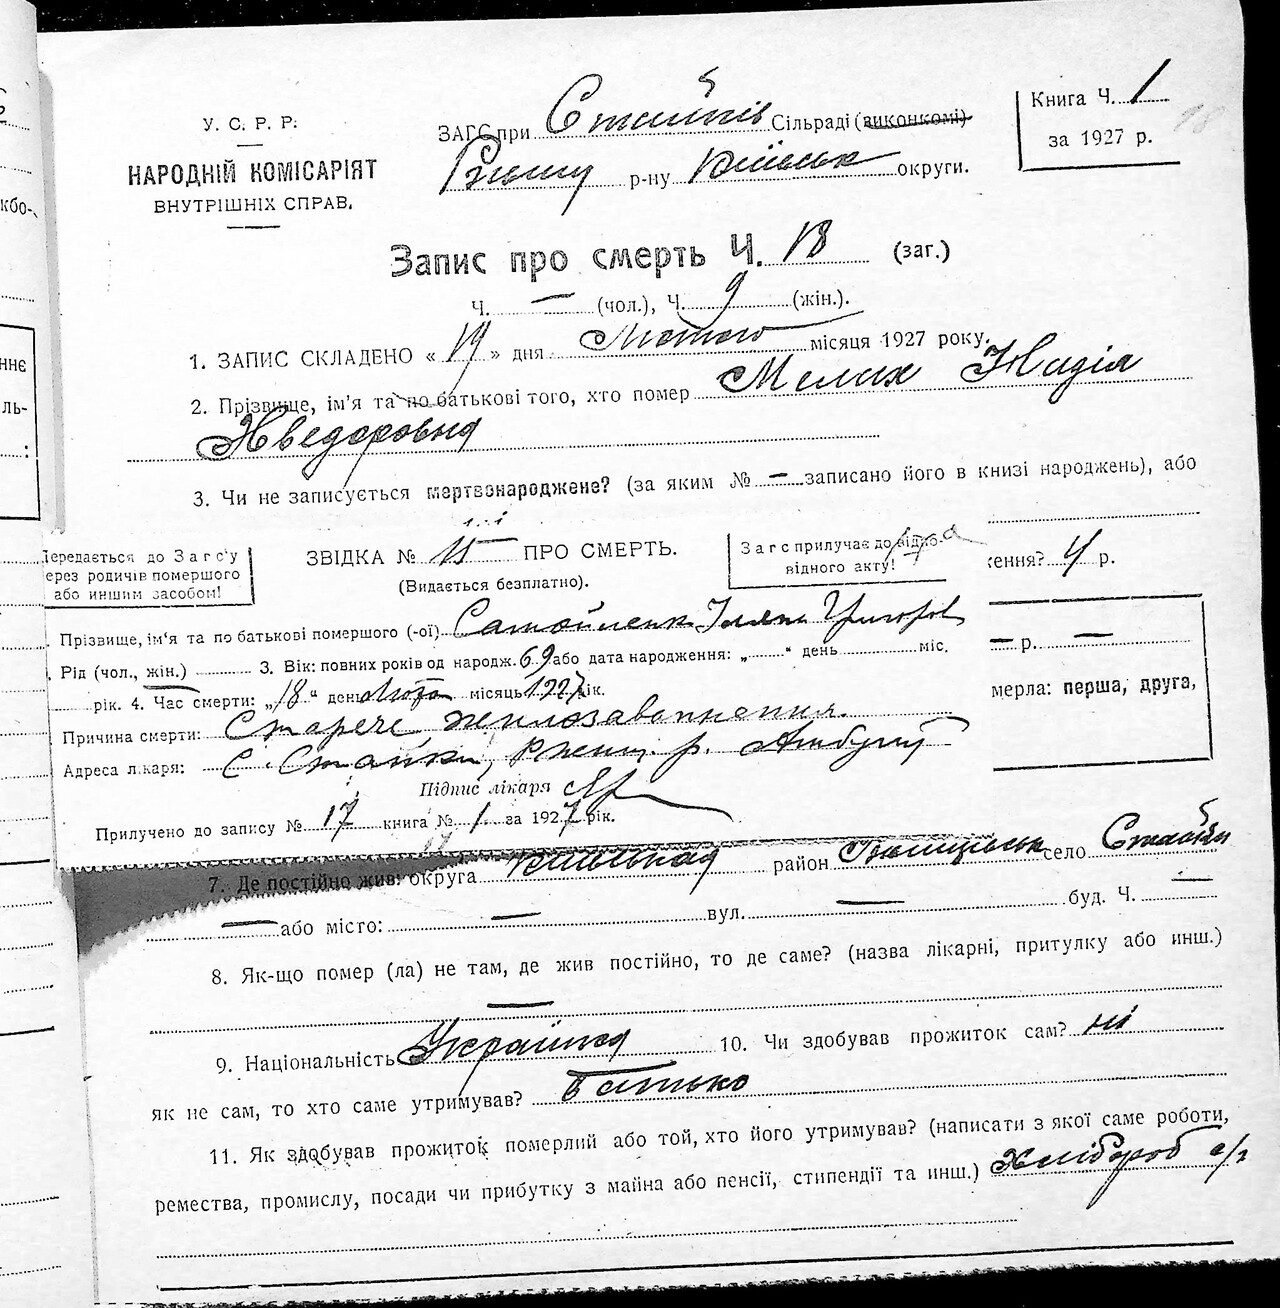 У. С. Р. Р.
НАРОДНІЙ КОМІСАРІЯТ
ВНУТРІШНІХ СПРАВ.
ЗАГС при Стайків Сільраді (виконкомі)
Ржищ р-ну Київськ округи.
Книга Ч. 1
за 1927 р.
18
Запис про смерть Ч. 18 (заг.)
Ч. — (чол.), Ч. 9 (жін.).
1. ЗАПИС СКЛАДЕНО « 19 » дня Лютого місяця 1927 року.
2. Прізвище, ім'я та по батькові того, хто помер Мелих Надія
Хведоровна
3. Чи не записується мертвонароджене? (за яким № — записано його в книзі народжень), або
Передається до Загс'у
через родичів помершого
або иншим засобом!
ЗВІДКА № 15 ПРО СМЕРТЬ.
(Видається безплатно).
Загс прилучає до відпо-
відного акту!
ження? 4 р.
Прізвище, ім'я та по батькові помершого (-ої) Самойленк Григоров
Рід (чол., жін.) 3. Вік: повних років од народж. 69 або дата народження: „ “ день міс.
— р. —
рік. 4. Час смерти: „18“ день Лютого місяць 1927 рік.
мерла: перша, друга,
Причина смерти: Старече
Адреса лікаря: с. Стайки, Ржищ. р. Амбул
Підпис лікаря
Прилучено до запису № 17 книга № 1 за 1927 рік.
7. Де постійно жив: округа Київська район Ржищівськ село Стайки
— або місто: — вул. — буд. Ч. —
8. Як-що помер (ла) не там, де жив постійно, то де саме? (назва лікарні, притулку або инш.)
—
9. Національність Українка 10. Чи здобував прожиток сам? ні
як не сам, то хто саме утримував? Батько
11. Як здобував прожиток померлий або той, хто його утримував? (написати з якої саме роботи,
ремества, промислу, посади чи прибутку з майна або пенсії, стипендії та инш.) Хлібороб с/г